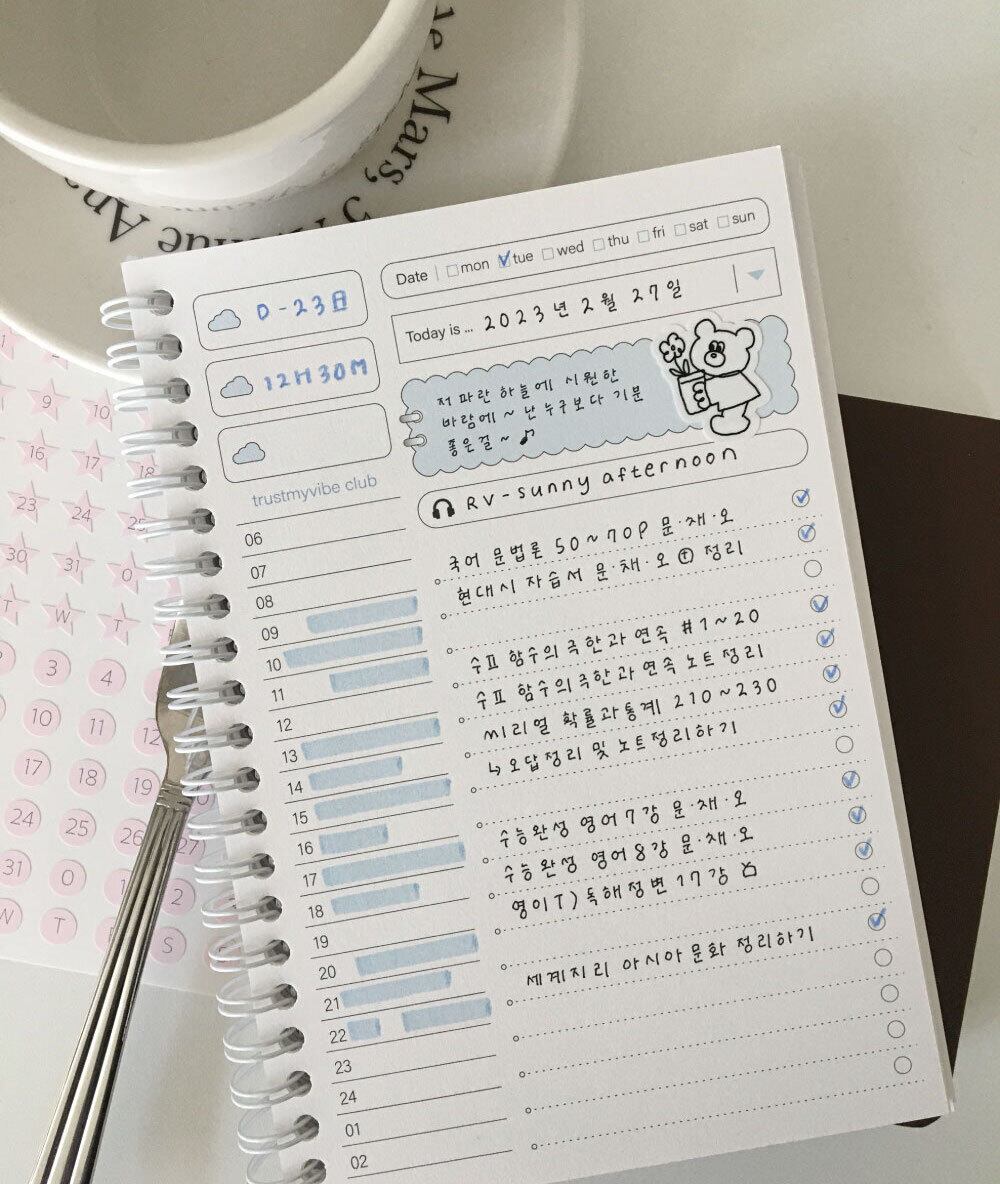 ne Mars, 5
Ave Ana
Date | mon tue wed thu fri sat sun
D-23日
Today is ... 2023년 2월 27일
12H 30M
저 파란 하늘에 시원한
바람에 ~ 난 누구보다 기분
좋은걸 ~ ♪
trustmyvibe club
RV - sunny afternoon
06
07
08
09
10
11
12
13
14
15
16
17
18
19
20
21
22
23
24
01
02
국어 문법론 50~70P 문·채·오
현대시 자습서 문·채·오 ⓣ 정리
수Ⅱ 함수의 극한과 연속 #1~20
수Ⅱ 함수의 극한과 연속 노트 정리
씨리얼 확률과통계 210~230
↳ 오답정리 및 노트정리하기
수능완성 영어 7강 문·채·오
수능완성 영어 8강 문·채·오
영이T) 독해정변 17강
세계지리 아시아 문화 정리하기
9 10
16 17 18
23 24 25
30 31 0
T W T
3 4
10 11 12
17 18 19
24 25 26 27
31 0 1 2
W T F S